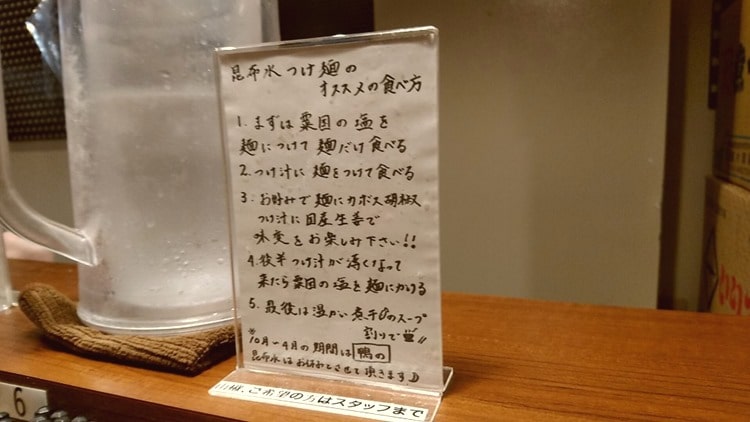 昆布水つけ麺の
オススメの食べ方
1. まずは粟国の塩を
麺につけて麺だけ食べる
2. つけ汁に麺をつけて食べる
3. お好みで麺にカボス胡椒
つけ汁に国産生姜で
味変をお楽しみ下さい!!
4. 後半つけ汁が薄くなって
来たら粟国の塩を麺にかける
5. 最後は温かい煮干のスープ
割りで〃
※10月〜4月の期間は鴨の
昆布水はお休みとさせて頂きます
ご希望の方はスタッフまで
6